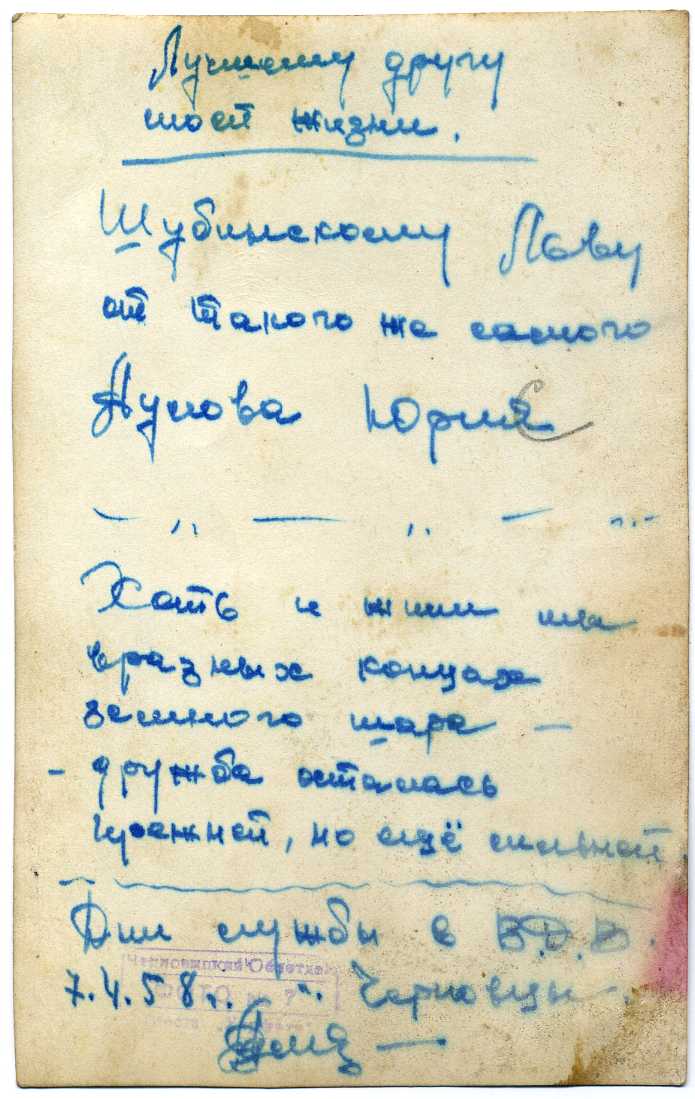 Лучшему другу
моей жизни.
Шубинскому Льву
от такого же самого
Юрия
Хоть и жили на
вразных концах
земного шара —
– дружба осталась
прежней, но ещё сильней.
Дни службы в В.Д.В.
7.4.58 г. г. Черновцы.
ФОТО № 7